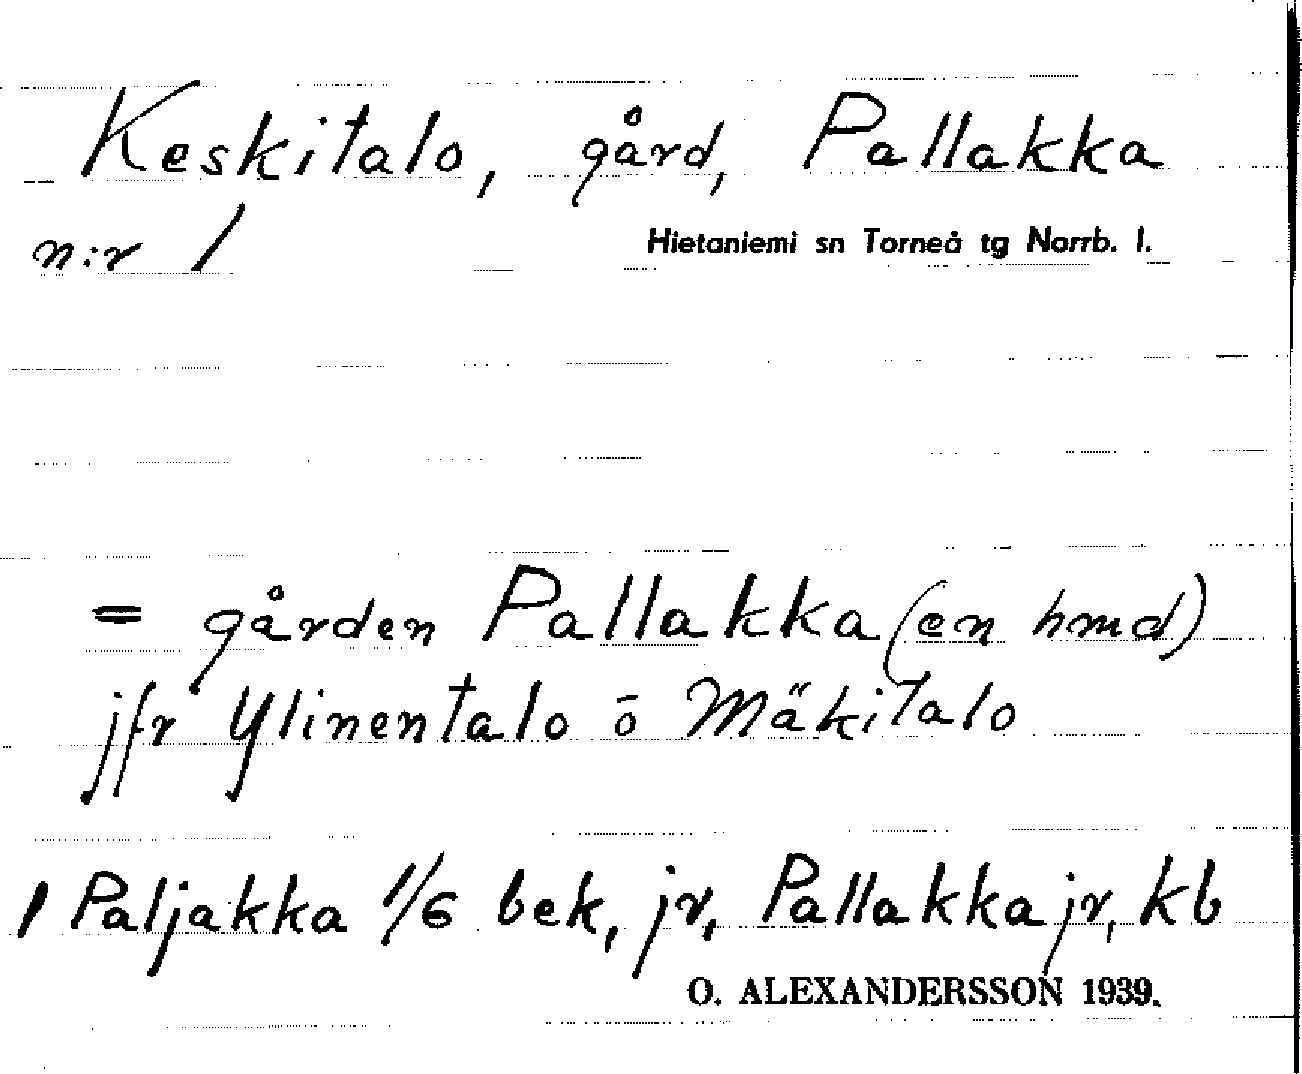 Keskitalo, gård, Pallakka
n:r 1
Hietaniemi sn Torneå tg Norrb. l.
= gården Pallakka (en hmd)
jfr Ylinentalo ō Mäkitalo
1 Paljakka 1/6 bek, jr, Pallakka jr, kb
O. ALEXANDERSSON 1939.